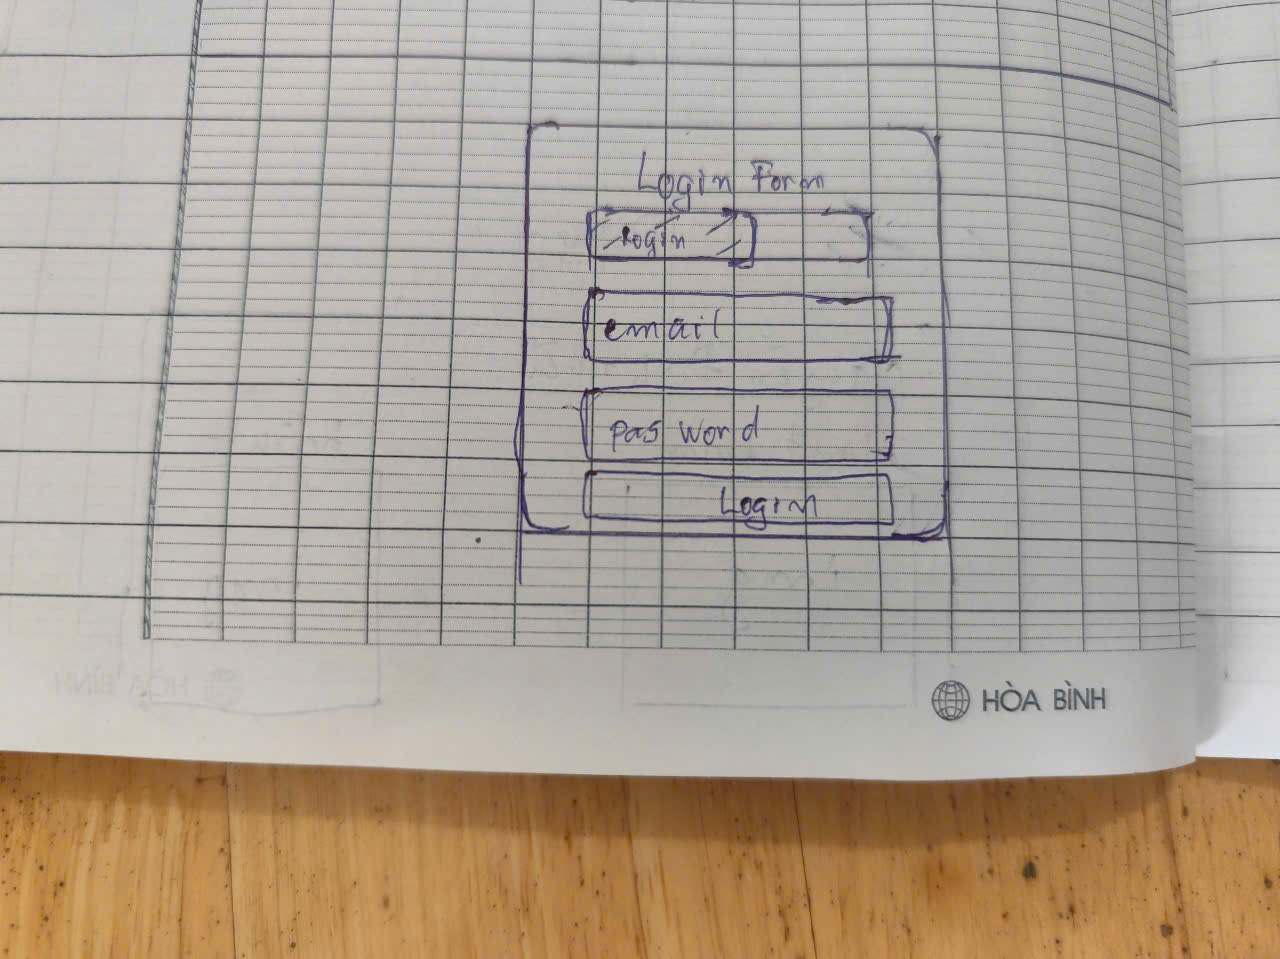 Login Form
Login
email
pas word
Login
HÒA BÌNH